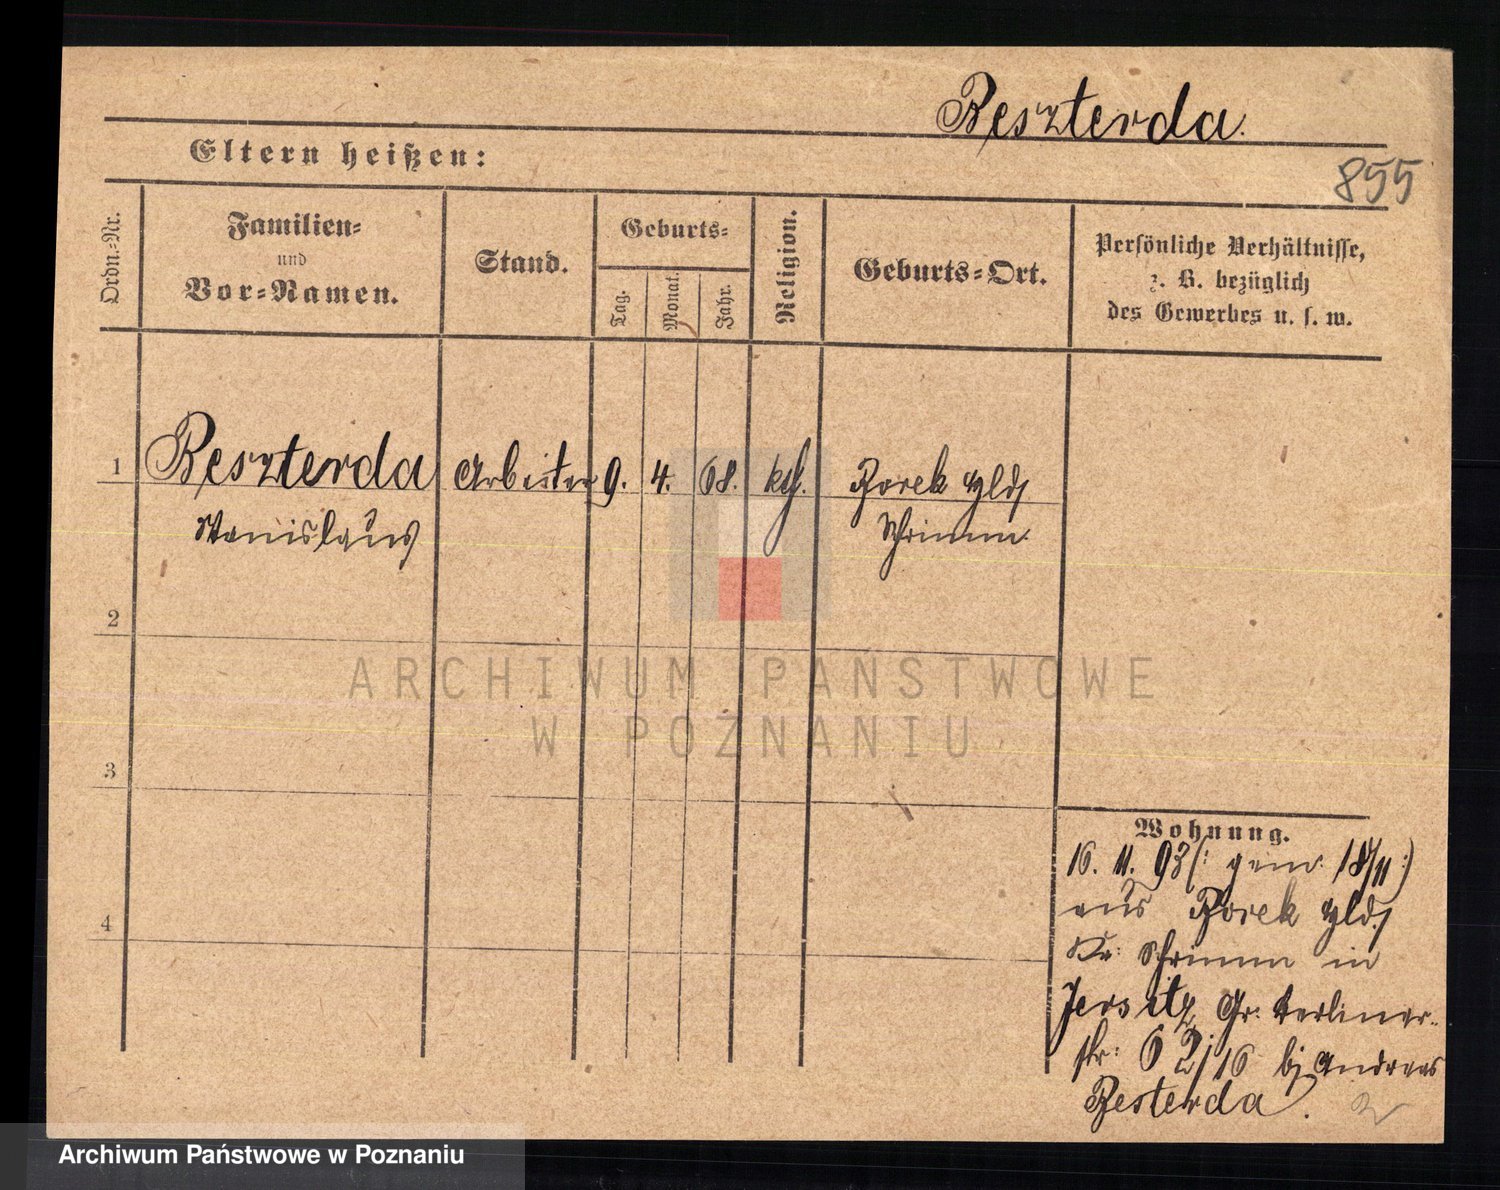 Beszterda.
855
Eltern heißen:
Ordn.-Nr.
Familien-
und
Vor-Namen.
Stand.
Geburts-
Tag.
Monat.
Jahr.
Religion.
Geburts-Ort.
Persönliche Verhältnisse,
z. B. bezüglich
des Gewerbes u. s. w.
1
Beszterda
Stanislaus
Arbeiter
9.
4.
68.
kth.
Borek Hld
Schrimm.
2
3
4
Wohnung.
16. 11. 93 (: gem: 18/11 :)
aus Borek Hld.
Kr: Schrimm in
Jersitz, Gr: Berliner-
str: 62/16 bj Andreas
Besterda.
ARCHIWUM PAŃSTWOWE
W POZNANIU
Archiwum Państwowe w Poznaniu